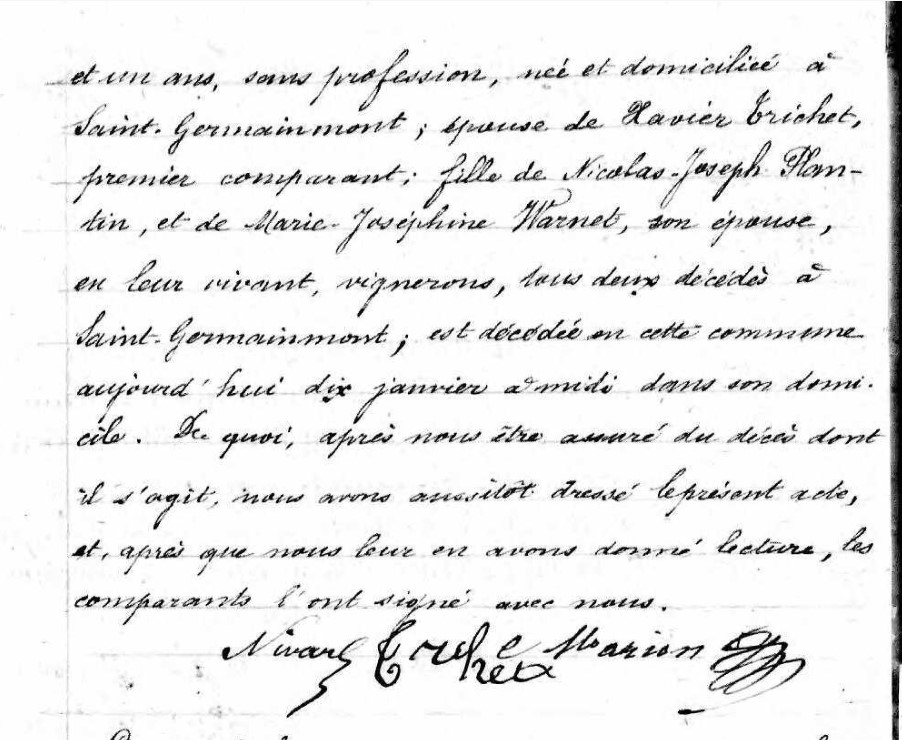 et un ans, sans profession, née et domiciliée à
Saint-Germainmont ; épouse de Xavier Trichet,
premier comparant ; fille de Nicolas-Joseph Plan-
tin, et de Marie-Joséphine Warnet, son épouse,
en leur vivant, vignerons, tous deux décédés à
Saint-Germainmont ; est décédée en cette commune
aujourd'hui dix janvier à midi dans son domi-
cile. De quoi, après nous être assuré du décès dont
il s'agit, nous avons aussitôt dressé le présent acte,
et, après que nous leur en avons donné lecture, les
comparants l'ont signé avec nous.
Marion